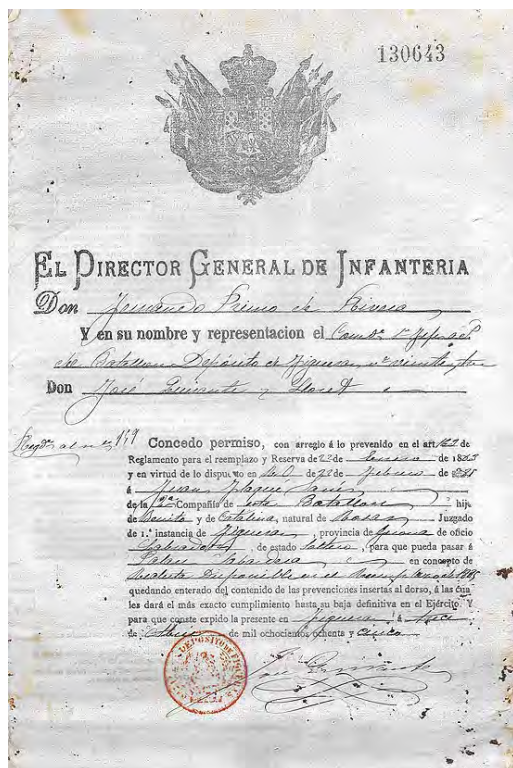 130643
EL DIRECTOR GENERAL DE INFANTERIA
Don Fernando Primo de Rivera
Y en su nombre y representacion el Comdte 1er Jefe del
de Batallon Depósito de Figueras nº veinte
Don José y Lloret
Regdo al nº 119
Concedo permiso, con arreglo á lo prevenido en el art 122 de
Reglamento para el reemplazo y Reserva de 22 de Enero de 1883
y en virtud de lo dispuesto en de 22 de Febrero de
á Juan
de la Compañía de este Batallon hijo
de Benito y de Catalina, natural de Juzgado
de 1.ª instancia de Figueras, provincia de Gerona de oficio
Labrador, de estado soltero, para que pueda pasar á
Palau Sabardera en concepto de
Recluta Disponible en el
quedando enterado del contenido de las prevenciones insertas al dorso, á las cua
les dará el más exacto cumplimiento hasta su baja definitiva en el Ejército. Y
para que conste expido la presente en Figueras á
de de mil ochocientos ochenta y cinco
DEPOSITO DE FIGUERAS
José